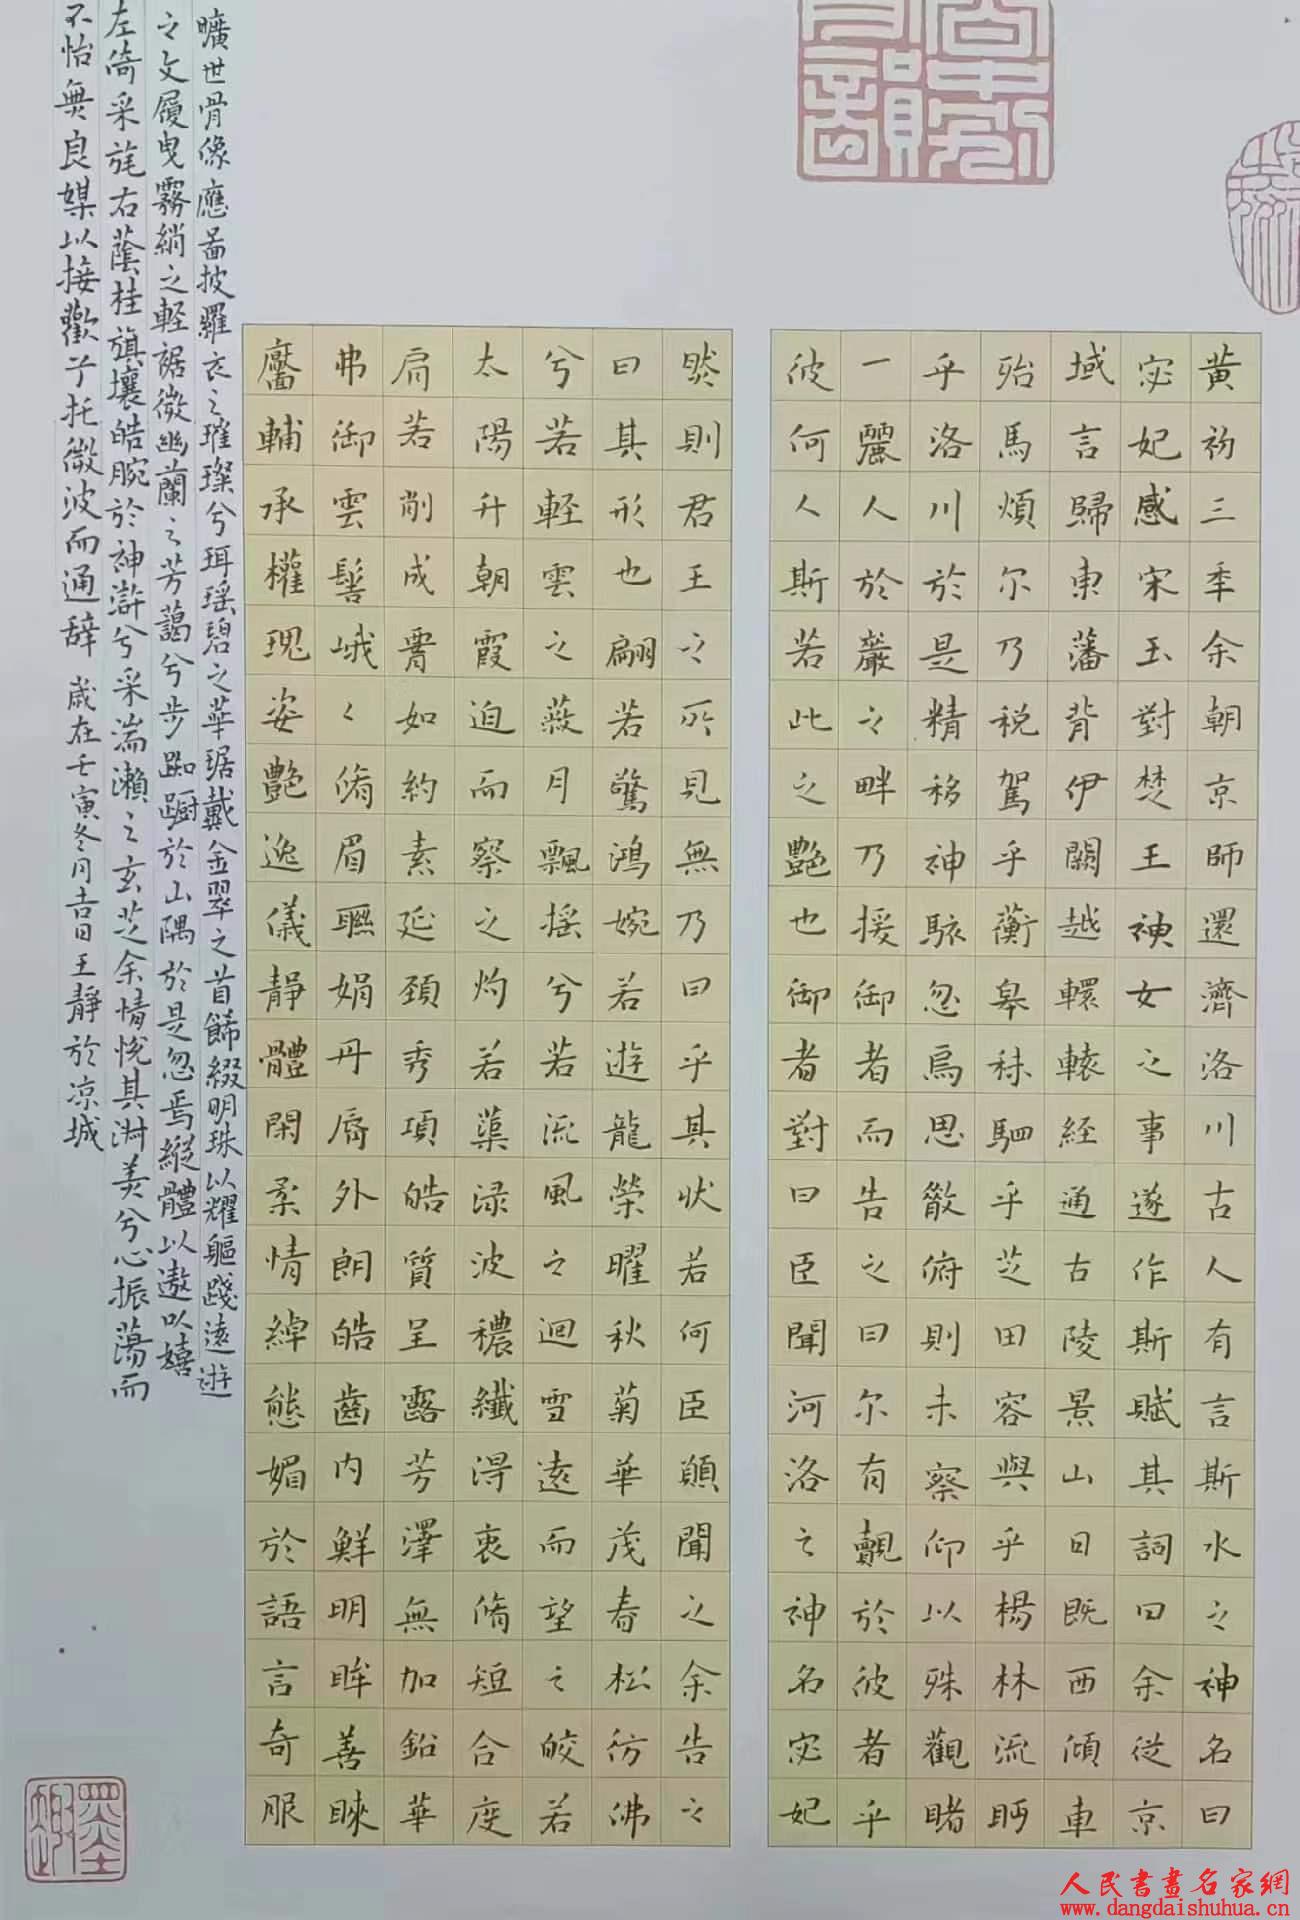 黄初三年余朝京師還濟洛川古人有言斯水之神名曰
宓妃感宋玉對楚王神女之事遂作斯賦其詞曰余從京
域言歸東藩背伊闕越轘轅経通古陵景山日既西傾車
殆馬煩尔乃税駕乎蘅皋秣駟乎芝田容與乎楊林流眄
乎洛川於是精移神駭忽焉思散俯則未察仰以殊觀睹
一麗人於巖之畔乃援御者而告之曰尔有覿於彼者乎
彼何人斯若此之艷也御者對曰臣聞河洛之神名宓妃
然則君王之所見無乃曰乎其状若何臣願聞之余告之
曰其形也翩若驚鴻婉若遊龍榮曜秋菊華茂春松仿佛
兮若軽雲之蔽月飄摇兮若流風之迴雪遠而望之皎若
太陽升朝霞迫而察之灼若蕖渌波穠纖得衷脩短合度
肩若削成腰如約素延頚秀項皓質呈露芳澤無加鉛華
弗御雲髻峨々脩眉聯娟丹脣外朗皓齒内鮮明眸善睞
靨輔承權瑰姿艷逸儀靜體閑柔情綽態媚於語言奇服
曠世骨像應啚披羅衣之璀璨兮珥瑶碧之華琚戴金翠之首飾綴明珠以耀軀踐遠遊
之文履曳霧綃之軽裾微幽蘭之芳藹兮步踟躕於山隅於是忽焉縱體以遨以嬉
左倚采旄右蔭桂旗攘皓腕於神滸兮采湍瀨之玄芝余情悅其淑美兮心振蕩而
不怡無良媒以接歡予托微波而通辞 歲在壬寅冬月吉日王靜於凉城
人民書畫名家網
www.dangdaishuhua.cn